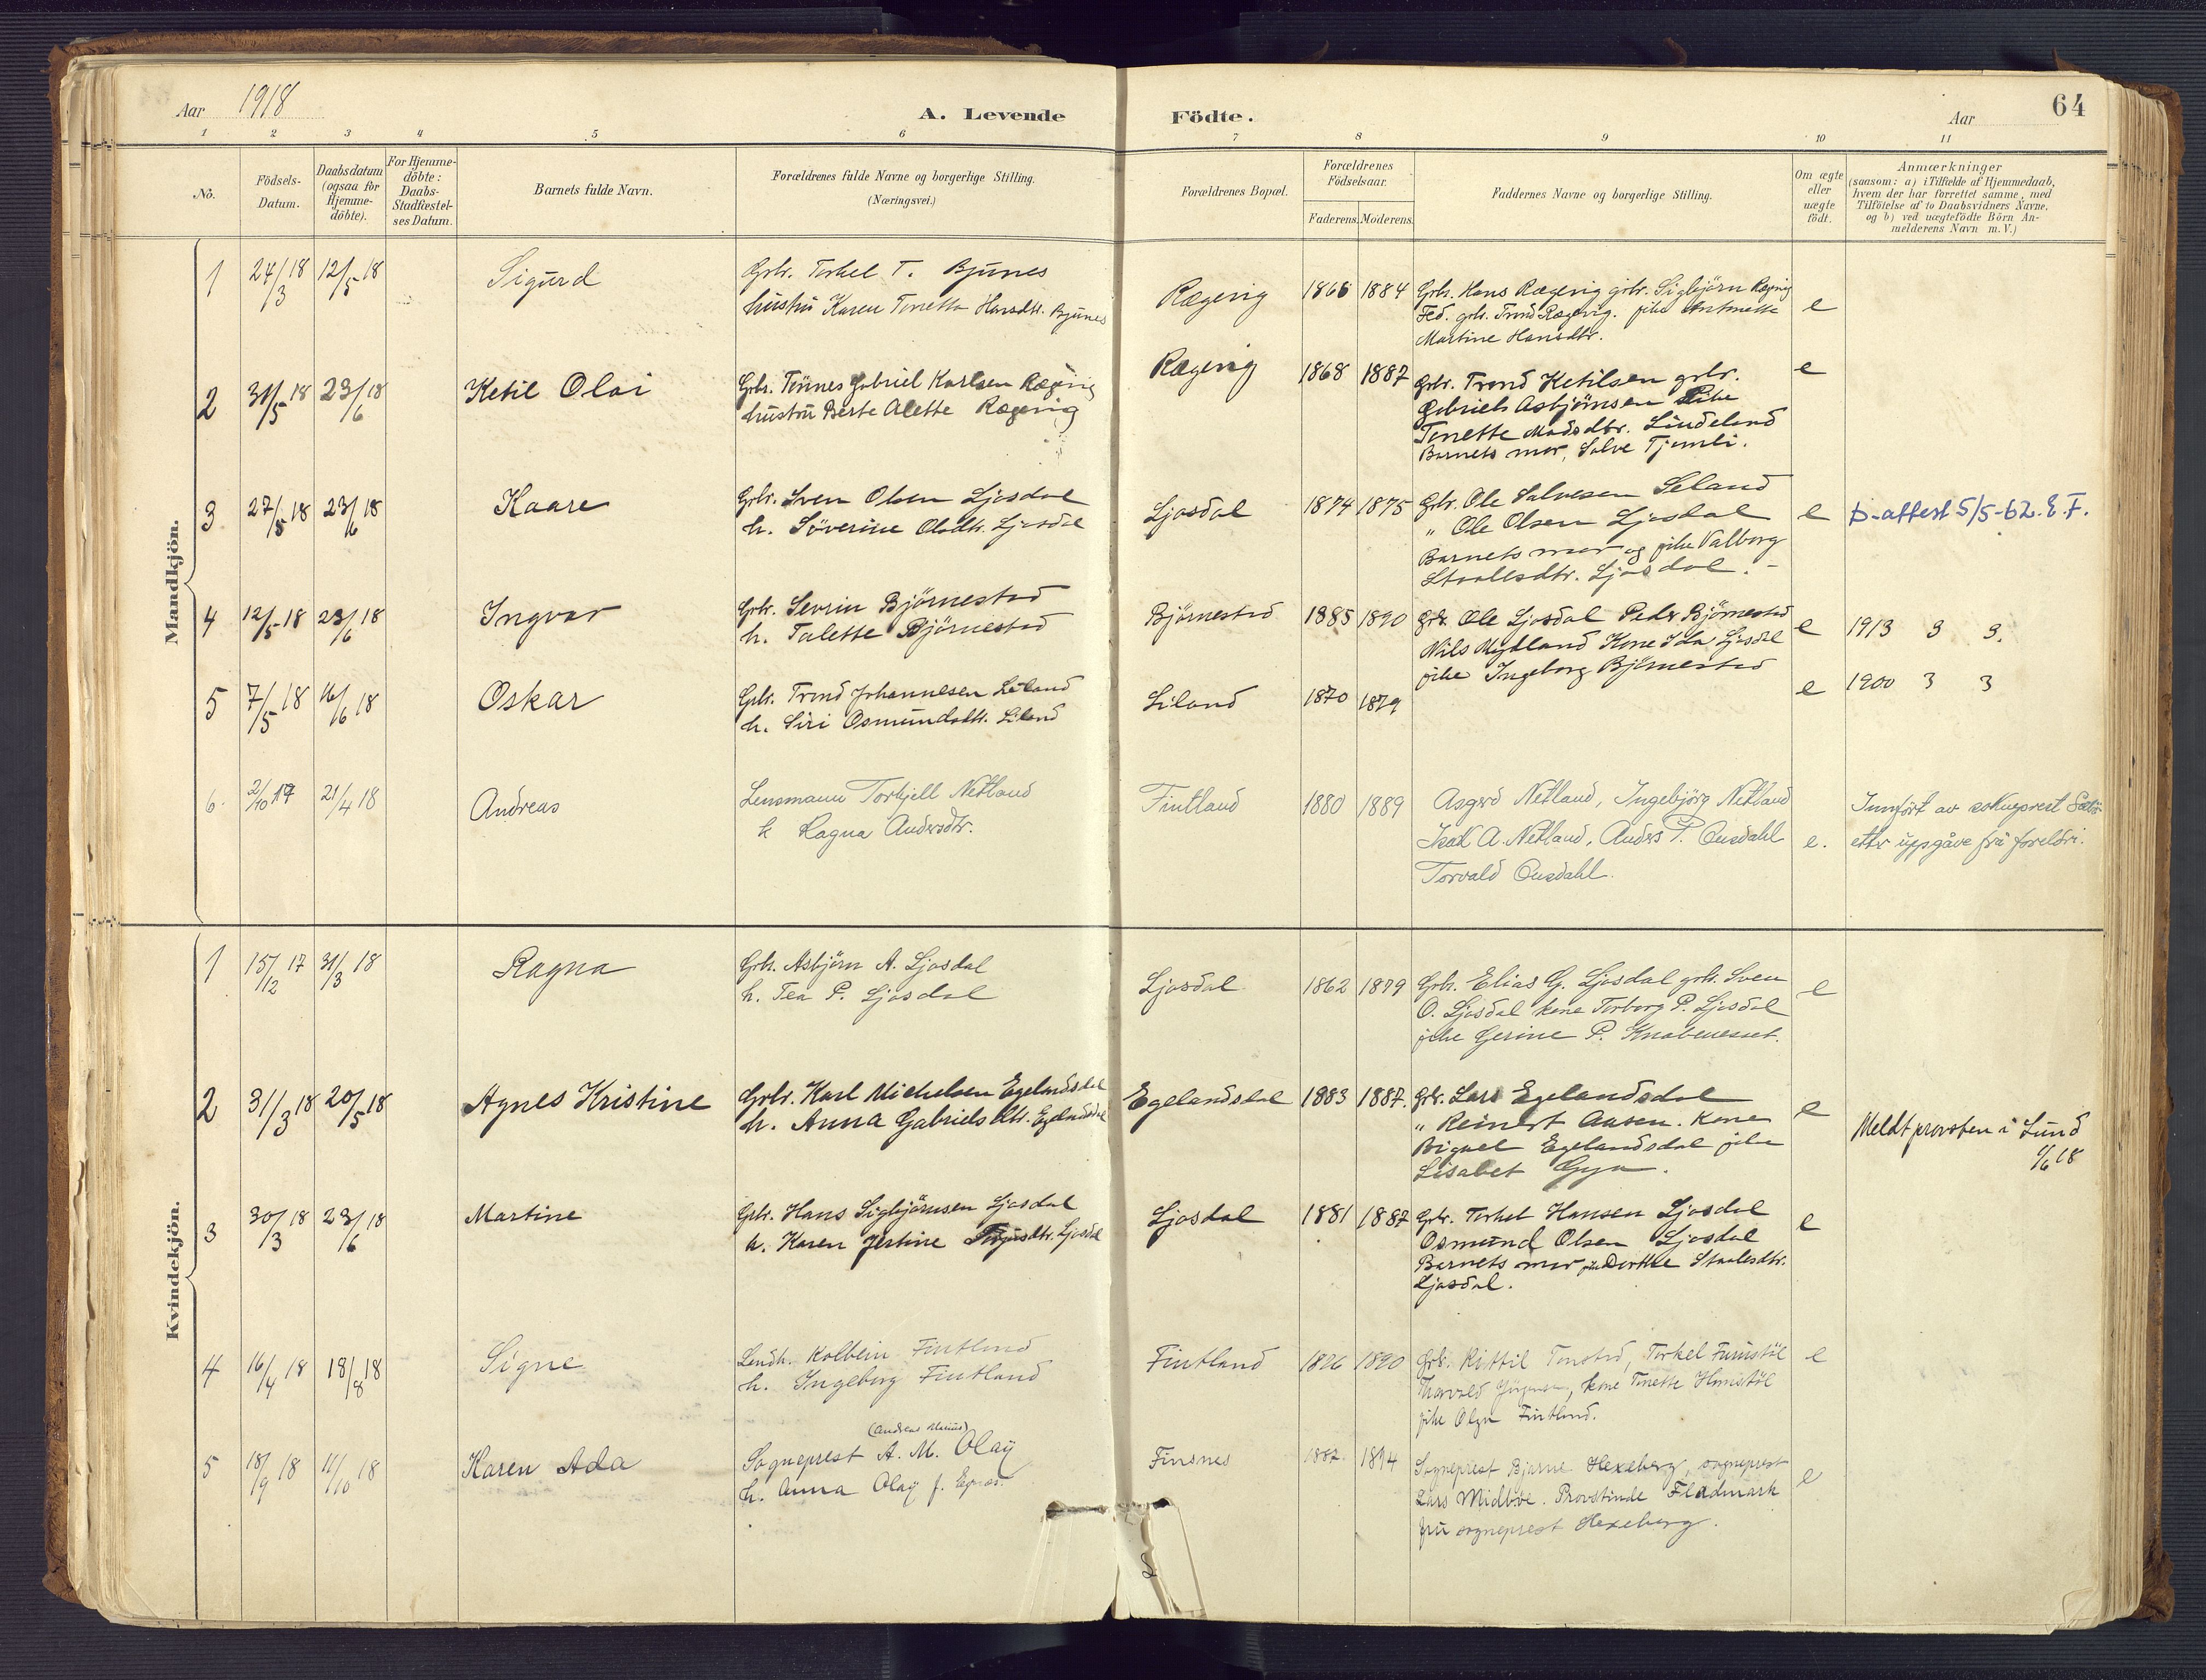 Aar 1918
A. Levende Födte.
Aar
64
1 2 3 4 5 6 7 8 9 10 11
No.
Födsels-
Datum.
Daabsdatum
(ogsaa for
Hjemme-
döbte).
For Hjemme-
döbte:
Daabs-
Stadfæstel-
ses Datum.
Barnets fulde Navn.
Forældrenes fulde Navne og borgerlige Stilling.
(Næringsvei.)
Forældrenes Bopæl.
Forældrenes
Födselsaar.
Faderens. Moderens.
Faddernes Navne og borgerlige Stilling.
Om ægte
eller
uægte
födt.
Anmærkninger
(saasom: a) i Tilfælde af Hjemmedaab,
hvem der har forrettet samme, med
Tilföielse af to Daabsvidners Navne.
og b) ved uægtefödte Börn An-
melderens Navn m. V.)
Mandkjön.
1 24/3 18 12/5 18 Sigurd
Grbr. Torkel T. Bjunes
hustru Karen Tonette Hansdtr. Bjunes
Rægevig 1866 1884
Grbr. Hans Rægevig grbr. Sigbjörn Rægevig
Fed. grbr. Trond Rægevig. pike Antonette
Martine Hansdtr.
e
2 31/5 18 23/6 18 Ketil Olai
Grbr. Tönnes Gabriel Karlsen Rægevig
hustru Berte Alette Rægevig
Rægevig 1868 1887
Grbr. Trond Ketilsen grbr.
Gabriel Asbjörnsen Pike
Tonette Madsdtr. Lindeland
Barnets mor, Salve Tjomli.
e
3 27/5 18 23/6 18 Kaare
Grbr. Sven Olsen Ljosdal
h. Söverine Olsdtr. Ljosdal
Ljosdal 1874 1875
Grbr. Ole Salvesen Seland
" Ole Olsen Ljosdal
Barnets mor og pike Valborg
Staalesdtr. Ljosdal.-
e D-attest 5/5-62. E. F.
4 12/5 18 23/6 18 Ingvar
Grbr. Sevrin Björnestad
h. Talette Björnestad
Björnestad 1885 1890
Grbr. Ole Ljosdal Peder Björnestad
Nils Mydland Kone Ida Ljosdal
pike Ingeborg Björnestad
e 1913 3 3.
5 7/5 18 16/6 18 Oskar
Grbr. Trond Johannesen Liland
h. Siri Osmundsdtr. Liland
Liland 1870 1879
e 1900 3 3
6. 2/10 17 21/4 18 Andreas
Lensmann Torkjell Netland
h Ragna Andersdtr.
Fintland 1880 1889
Asgerd Netland, Ingebjörg Netland
Isak A. Netland, Anders P. Ousdahl
Torvald Ousdahl.
e.
Innfört av sokneprest
etter uppgåve frå foreldri.
Kvindekjön.
1 15/12 17 31/3 18 Ragna
Grbr. Asbjörn A. Ljosdal
h. Tea P. Ljosdal
Ljosdal 1862 1879
Grbr. Elias G. Ljosdal grbr. Sven
O. Ljosdal kone Torborg P. Ljosdal
pike Gerine P. Knabenesset.
e
2 31/3 18 20/5 18 Agnes Kristine
Grbr. Karl Mickelsen Egelandsdal
h. Anna Gabrielsdtr. Egelandsdal
Egelandsdal 1883 1887.
Grbr. Lars Egelandsdal
" Reinert Aasen. Kone
Egelandsdal pike
Lisabet Gya.
e
Meldt provsten i Lund
1/6 18
3 30/3 18 23/6 18 Martine
Grbr. Hans Sigbjörnsen Ljosdal
h. Karen Jertine Ljosdal
Ljosdal 1881 1887
Grbr. Torkel Hansen Ljosdal
Osmund Olsen Ljosdal
Barnets mor Dorthe Staalesdtr.
Ljosdal.
e
4 16/4 18 18/8 18 Signe
Landh. Kolbein Fintland
h. Ingeborg Fintland
Fintland 1890
Grbr. Kittil Tonstad, Torkel
Thorvald kone Tonette
pike Olga Fintland.
e
5 18/9 18 11/10 18 Karen Ada
(Andreas )
Sogneprest A. M. Olay
h. Anna Olay f.
Finsnes 1882. 1894
Sogneprest Bjarne Hexeberg, sogneprest
Lars Midböe. Provstinde Fladmark
fru sogneprest Hexeberg.
e